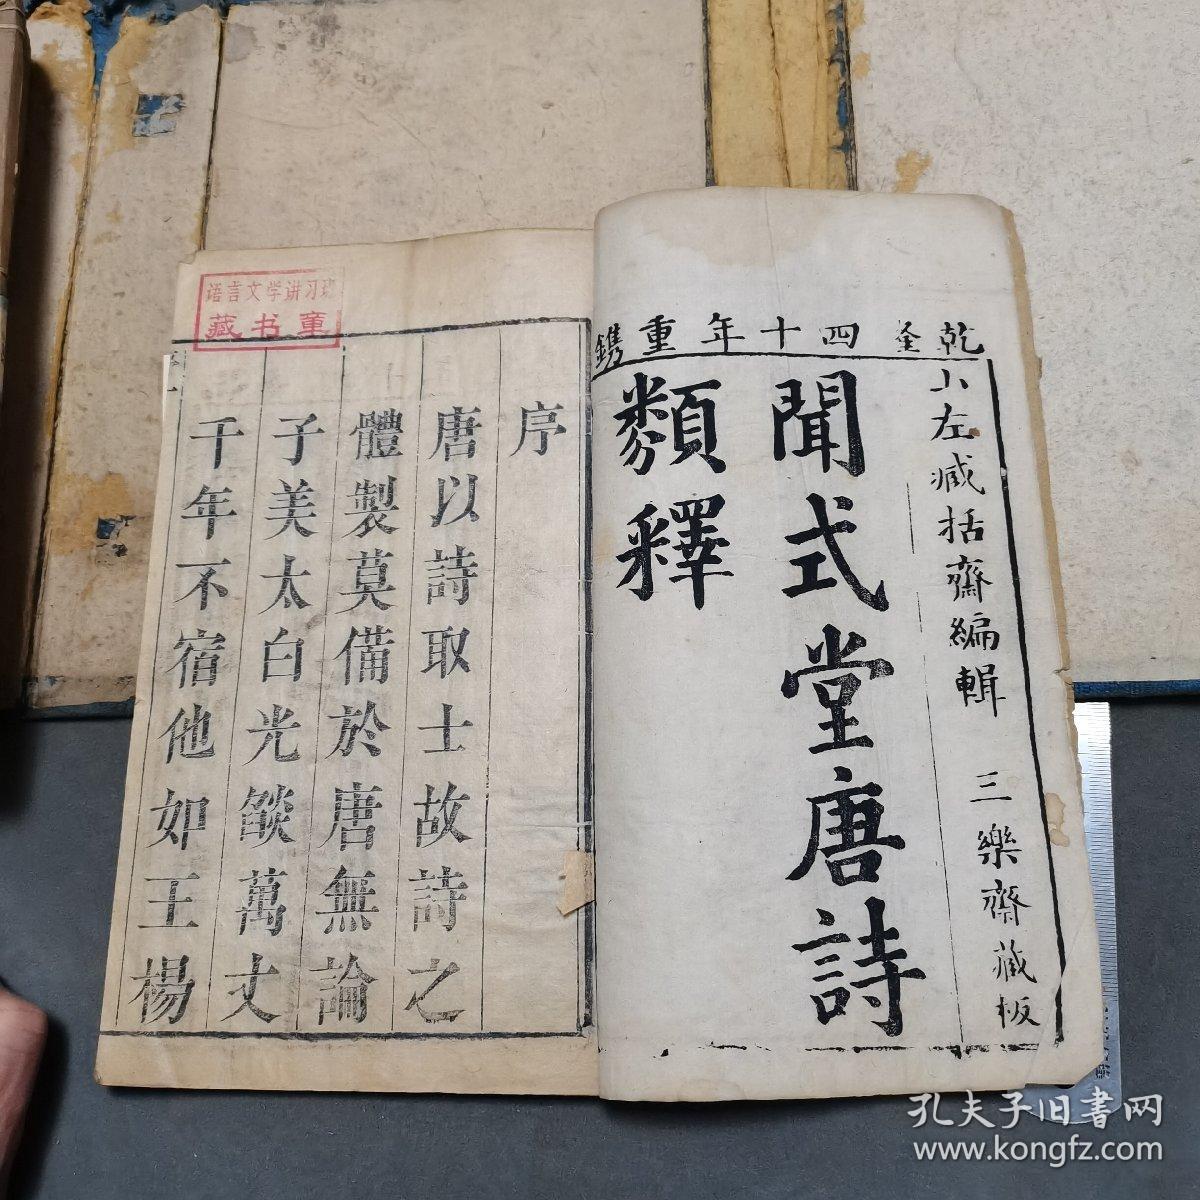 乾隆四十年重鐫
山左臧括齋編輯　三樂齋藏板
聞式堂唐詩
類釋
序
唐以詩取士故詩之
體製莫備於唐無論
子美太白光燄萬丈
千年不宿他如王楊
语言文学讲习班
藏书章
孔夫子旧書网
www.kongfz.com